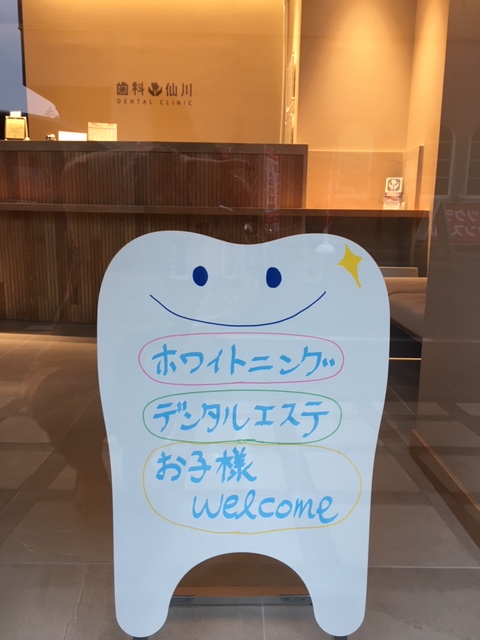 歯科 仙川
DENTAL CLINIC
ホワイトニング
デンタルエステ
お子様
welcome